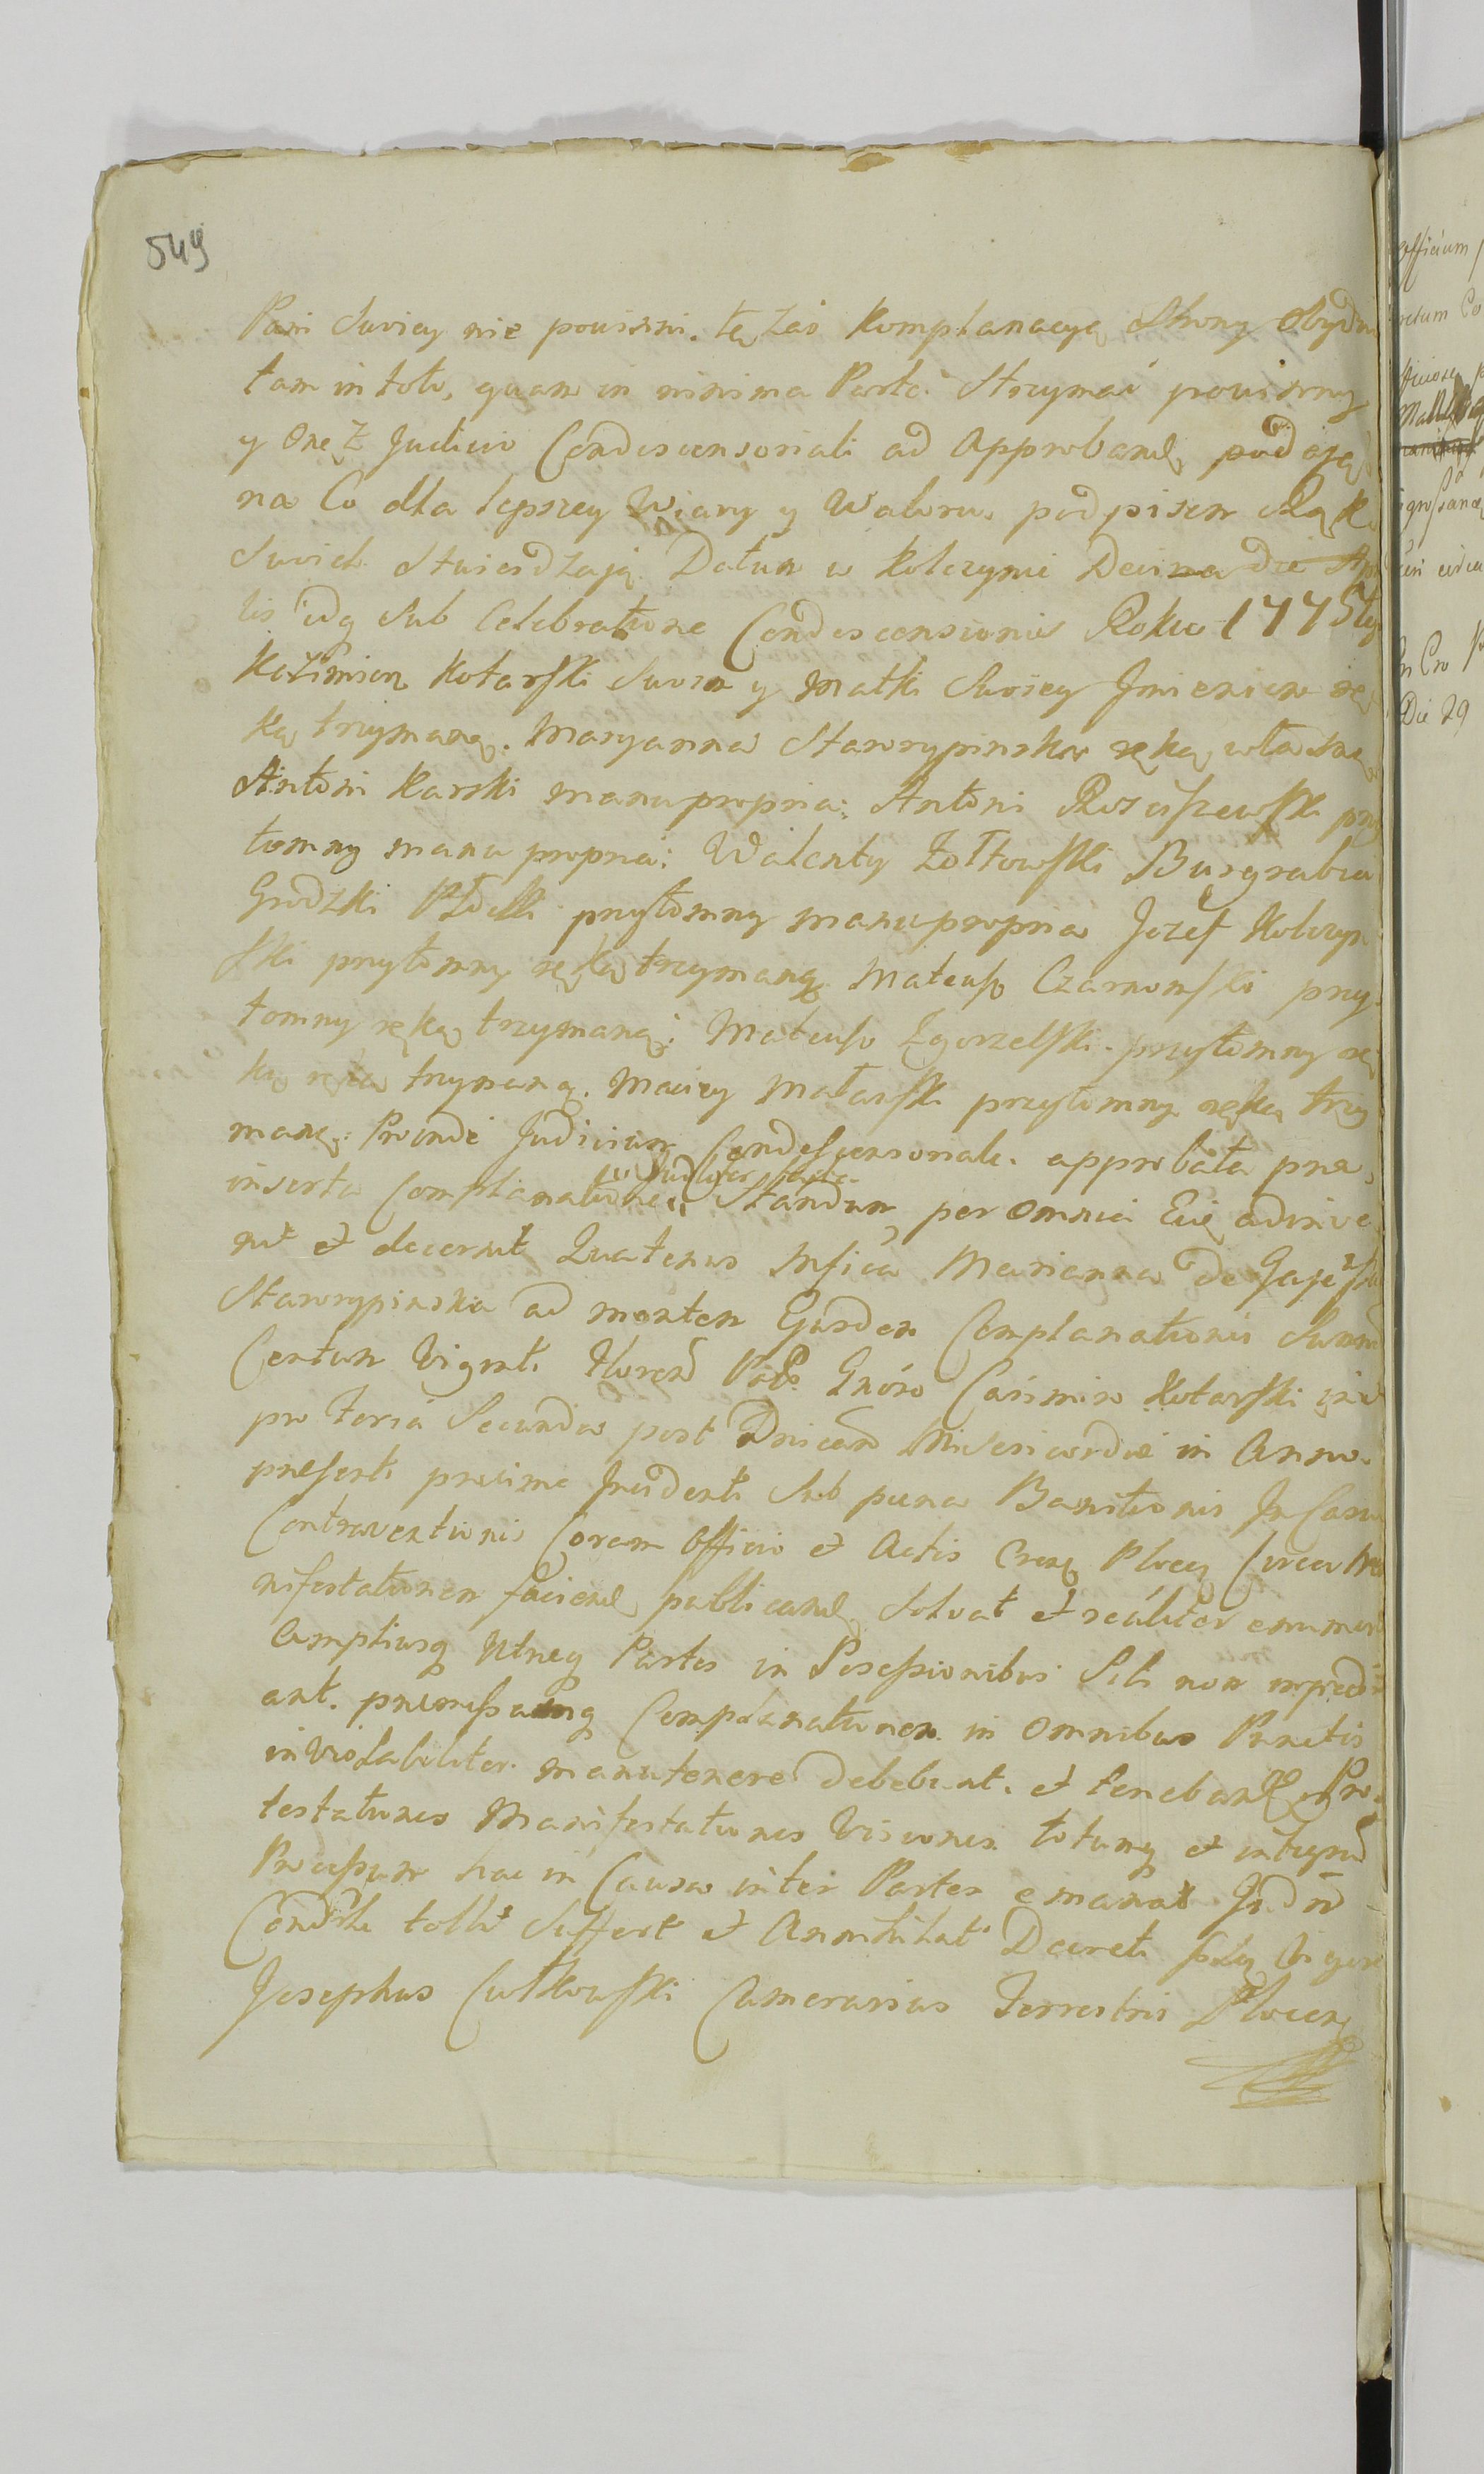 549
Pani Swoiey nie powinni. tę zas Komplanacyą Strony Obydwi
tam in toto, quam in minima Parte Strzymać powinny
y Onęż Judicio Condescensoriali ad Approband podają
na Co dla lepszey Wiary y Waloru podpisem Rąk
Swoich Stwierdzają Datum w Kolczynie Decima die Apri
lis idq Sub Celebratione Condescensionis Roku 1775tego
Kazimierz Kotarski Swoim y Matki Swoiey Jmieniem rę
ką trzymaną. Maryanna Staworypinska ręką własną
Antoni Karski manu propria: Antoni Rosciszewski przy
tomny manu propria: Walenty Zołtowski Burgrabia
Grodzki Płocki przytomny manu propria Jozef Kolczyn
ski przytomny ręką trzymaną Mateusz Czarnomski przy
tomny ręką trzymaną: Mateusz Zgorzelski przytomny rę
ką ręką trzymaną. Maciey Matarski przytomny ręką trzy
maną: Proinde Judicium Condescensoriale approbata prae
inserta Complanatione Standum per omnia Eię adinve
nit et decernit Quatenus Mfica Marianna de
Staworypinska ad mentem Ejusdem Complanationis Summ
Centum Viginti Floren Pol Gnoso Casimiro Kotarski
pro Feria Secunda post Dnicam Misericordiae in Anno
praesenti proxime Incidenti Sub paena Banitionis In Casu
Contraventionis Coram Officio et Actis Plocen Circa Ma
nifestationem faciend publicand Solvat et realiter enumeret
Ampliusq Utraeq Partes in Possessionibus Sibi non impedi
ant. praemissamq Complanationem in Omnibus Punctis
inviolabiliter manutenere debebunt. et tenebuntur Pro
testationes Manifestationes Visiones totumq et integrum
Processum hac in Causa inter Partes emanat Judm
Condle tollit Suffert et Annihilat Decreti Vigore
Josephus Cutkowski Camerarius Terrestris Plocen
officium
Die 29